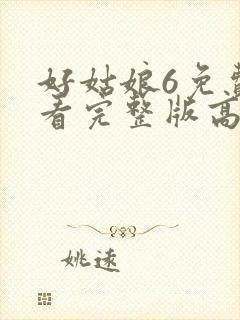 好姑娘6免费
看完整版高
姚遠